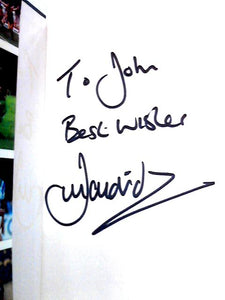 To John
Best wishes